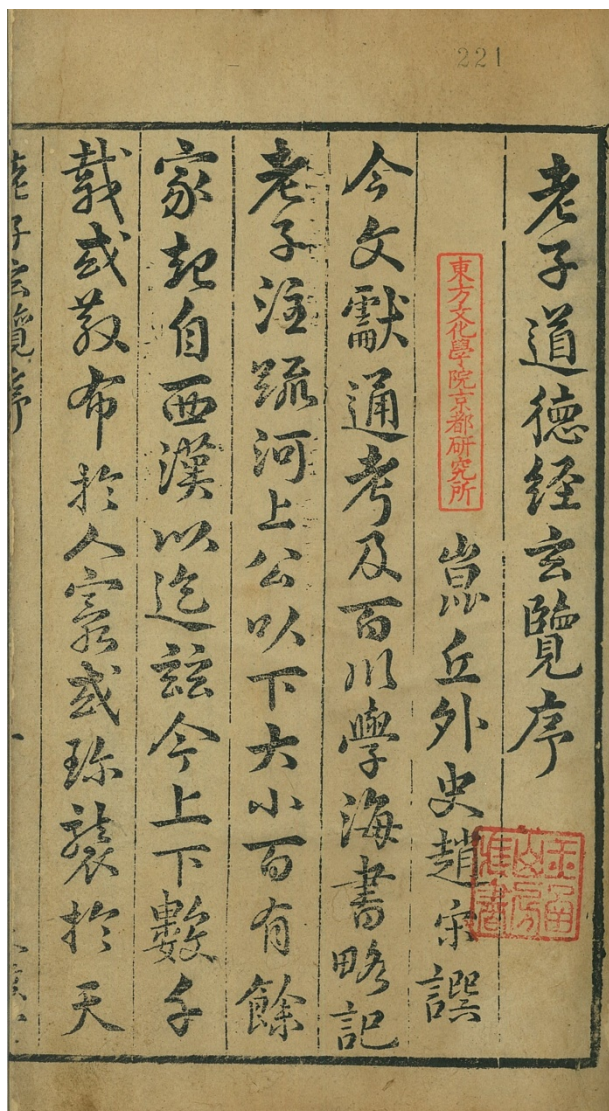 221
老子道德経玄覽序
東方文化學院京都研究所
崑丘外史趙宋譔
今文獻通考及百川學海書略記
老子注䟽河上公以下大小百有餘
家起自西漢以迄兹今上下數千
載或散布於人寰或珎襲於天
老子玄覽序
一